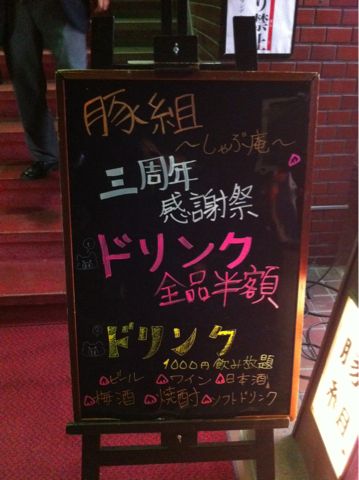 り禁止
豚組
〜しゃぶ庵〜
三周年
感謝祭
ドリンク
全品半額
ドリンク
1000円飲み放題
ビール ワイン 日本酒
梅酒 焼酎 ソフトドリンク
豚